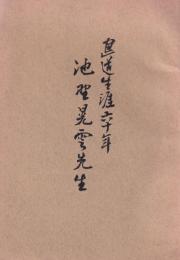 画道生涯六十年
池野晃雲先生